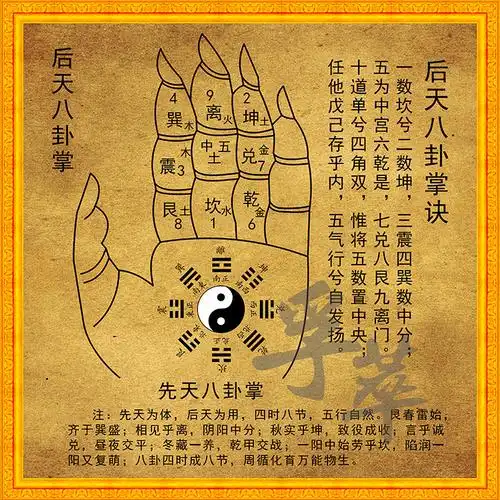 后天八卦掌诀
一数坎兮二数坤，三震四巽数中分；
五为中宫六乾是，七兑八艮九离门。
十道单兮四角双，惟将五数置中央；
任他戊己存乎内，五气行兮自发扬。
后天八卦掌
4 巽 木
9 离 火
2 坤 土
震 木 3
中 五 土
兑 金 7
艮 土 8
坎 水 1
乾 金 6
離
巽
坤
南正
震
坎
先天八卦掌
注：先天为体，后天为用，四时八节，五行自然。艮春雷始，
齐于巽盛；相见乎离，阴阳中分；秋实乎坤，致役成收；言乎诚
兑，昼夜交平；冬藏一养，乾甲交战；一阳中始劳乎坎，陷润一
阳又复萌；八卦四时成八节，周循化育万能物生。